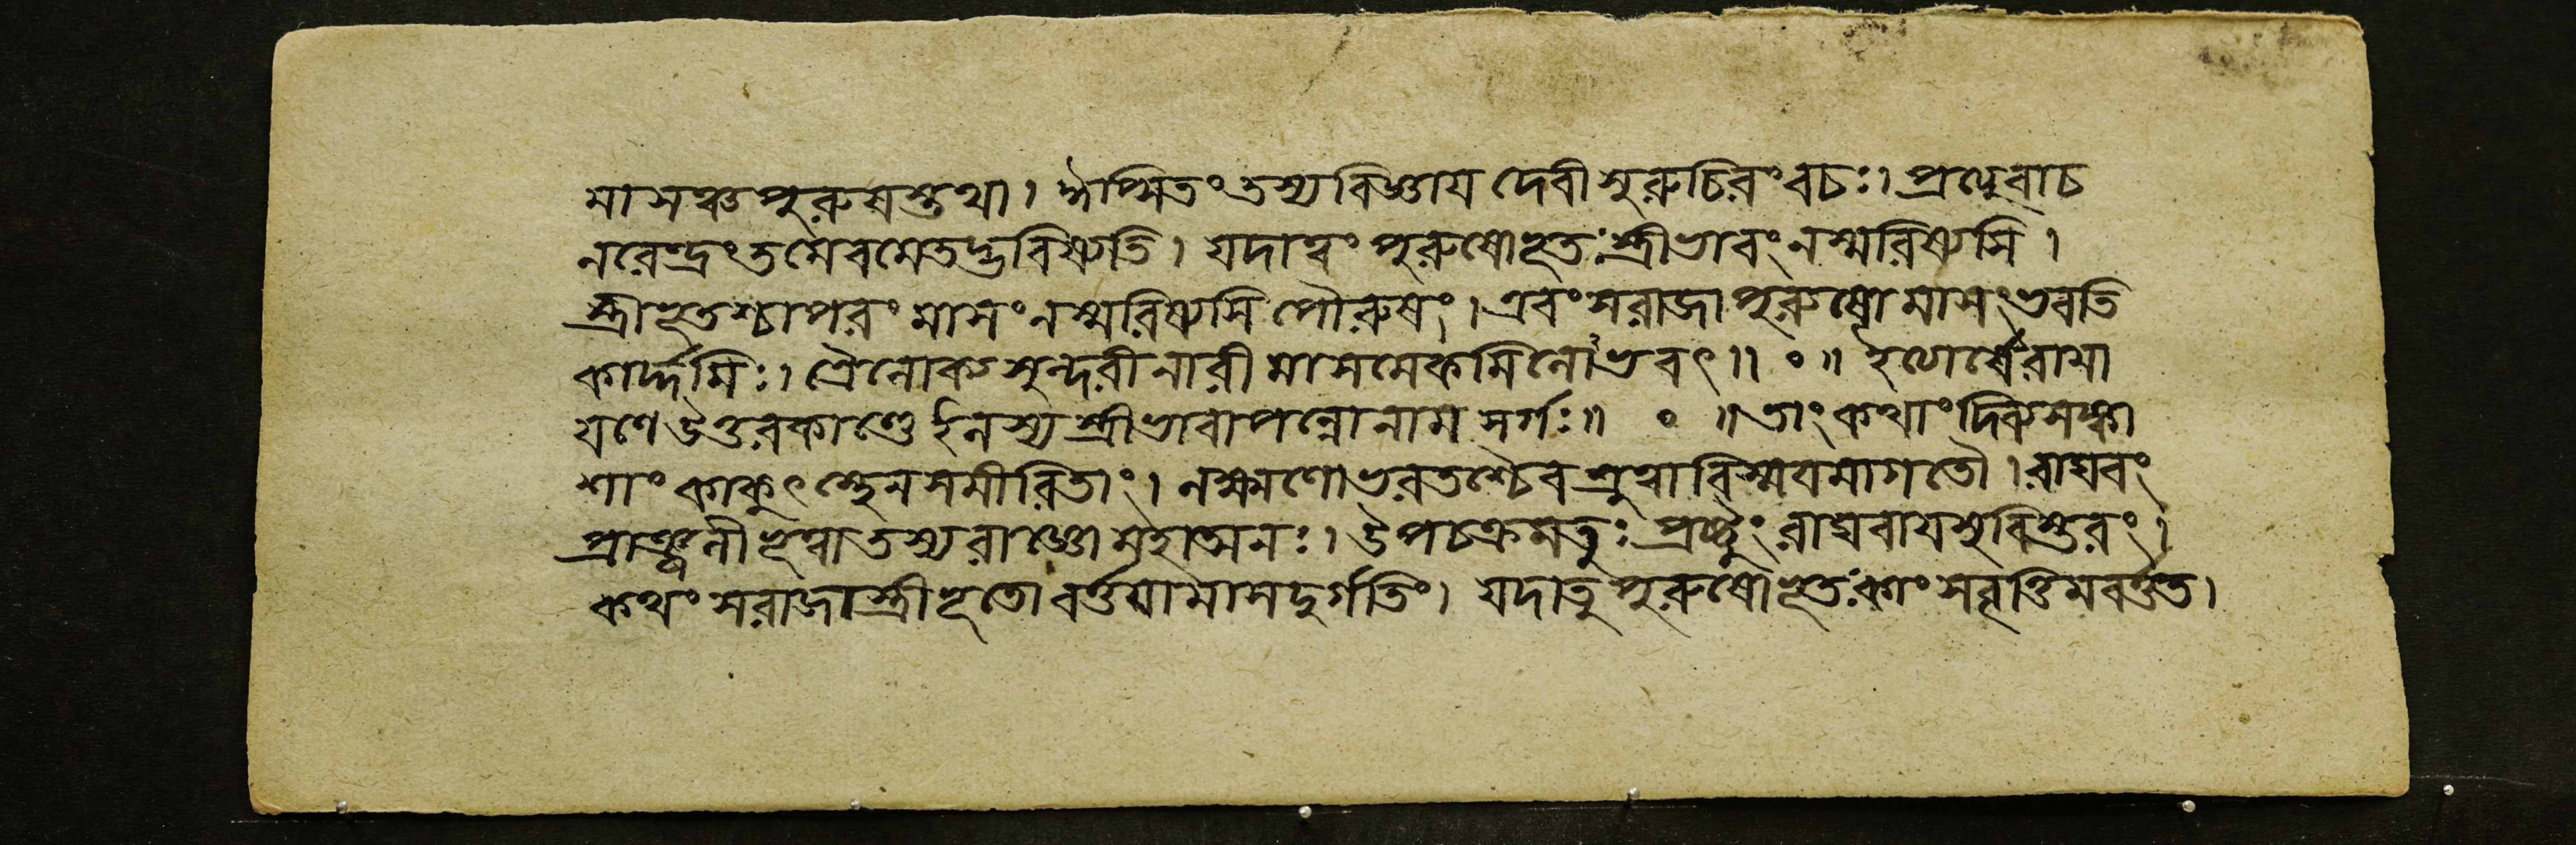 মাসঞ্চ পুরুষস্তথা। ঈপ্সিতং তস্য বিজ্ঞায দেবী সুরুচিরং বচঃ। প্রত্যুবাচ
নরেন্দ্রং তমেবমেতদ্ভবিষ্যতি। যদা ত্বং পুরুষো ভূতঃ স্ত্রীভাবং ন স্মরিষ্যসি।
স্ত্রীভূতশ্চাপরং মাসং ন স্মরিষ্যসি পৌরুষং। এবং স রাজা পুরুষো মাসং ভবতি
কার্দ্দমিঃ। ত্রৈলোক্যসুন্দরী নারী মাসমেকমিলোঽভবৎ॥ ০ ॥ ইত্যার্ষে রামা
যণে উত্তরকাণ্ডে ইলস্য স্ত্রীভাবাপন্নো নাম সর্গঃ॥ ০ ॥ তাং কথাং দিব্যসঙ্কা
শাং কাকুৎস্থেন সমীরিতাং। লক্ষ্মণো ভরতশ্চৈব শ্রুত্বা বিস্ময়মাগতৌ। রাঘবং
প্রাঞ্জলী ভূত্বা তস্য রাজ্ঞো মহাত্মনঃ। উপচক্রমতুঃ প্রষ্টুং রাঘবায সুবিস্তরং।
কথং স রাজা স্ত্রীভূতো বর্ত্তযামাস দুর্গতিং। যদা তু পুরুষো ভূতঃ কাং স বৃত্তিমবর্ত্তত।